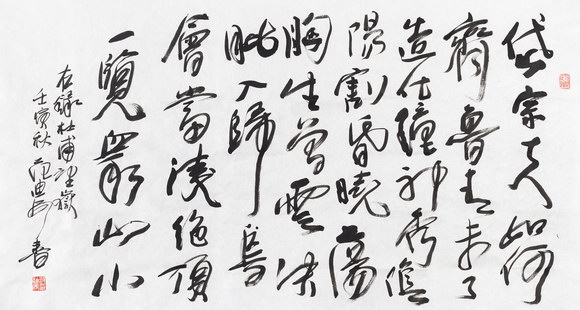 岱宗夫如何
齊魯青未了
造化鍾神秀陰
陽割昏曉蕩
胸生曾雲決
眥入歸鳥
會當凌絕頂
一覽眾山小
右録杜甫望嶽
壬寅秋范迪安書